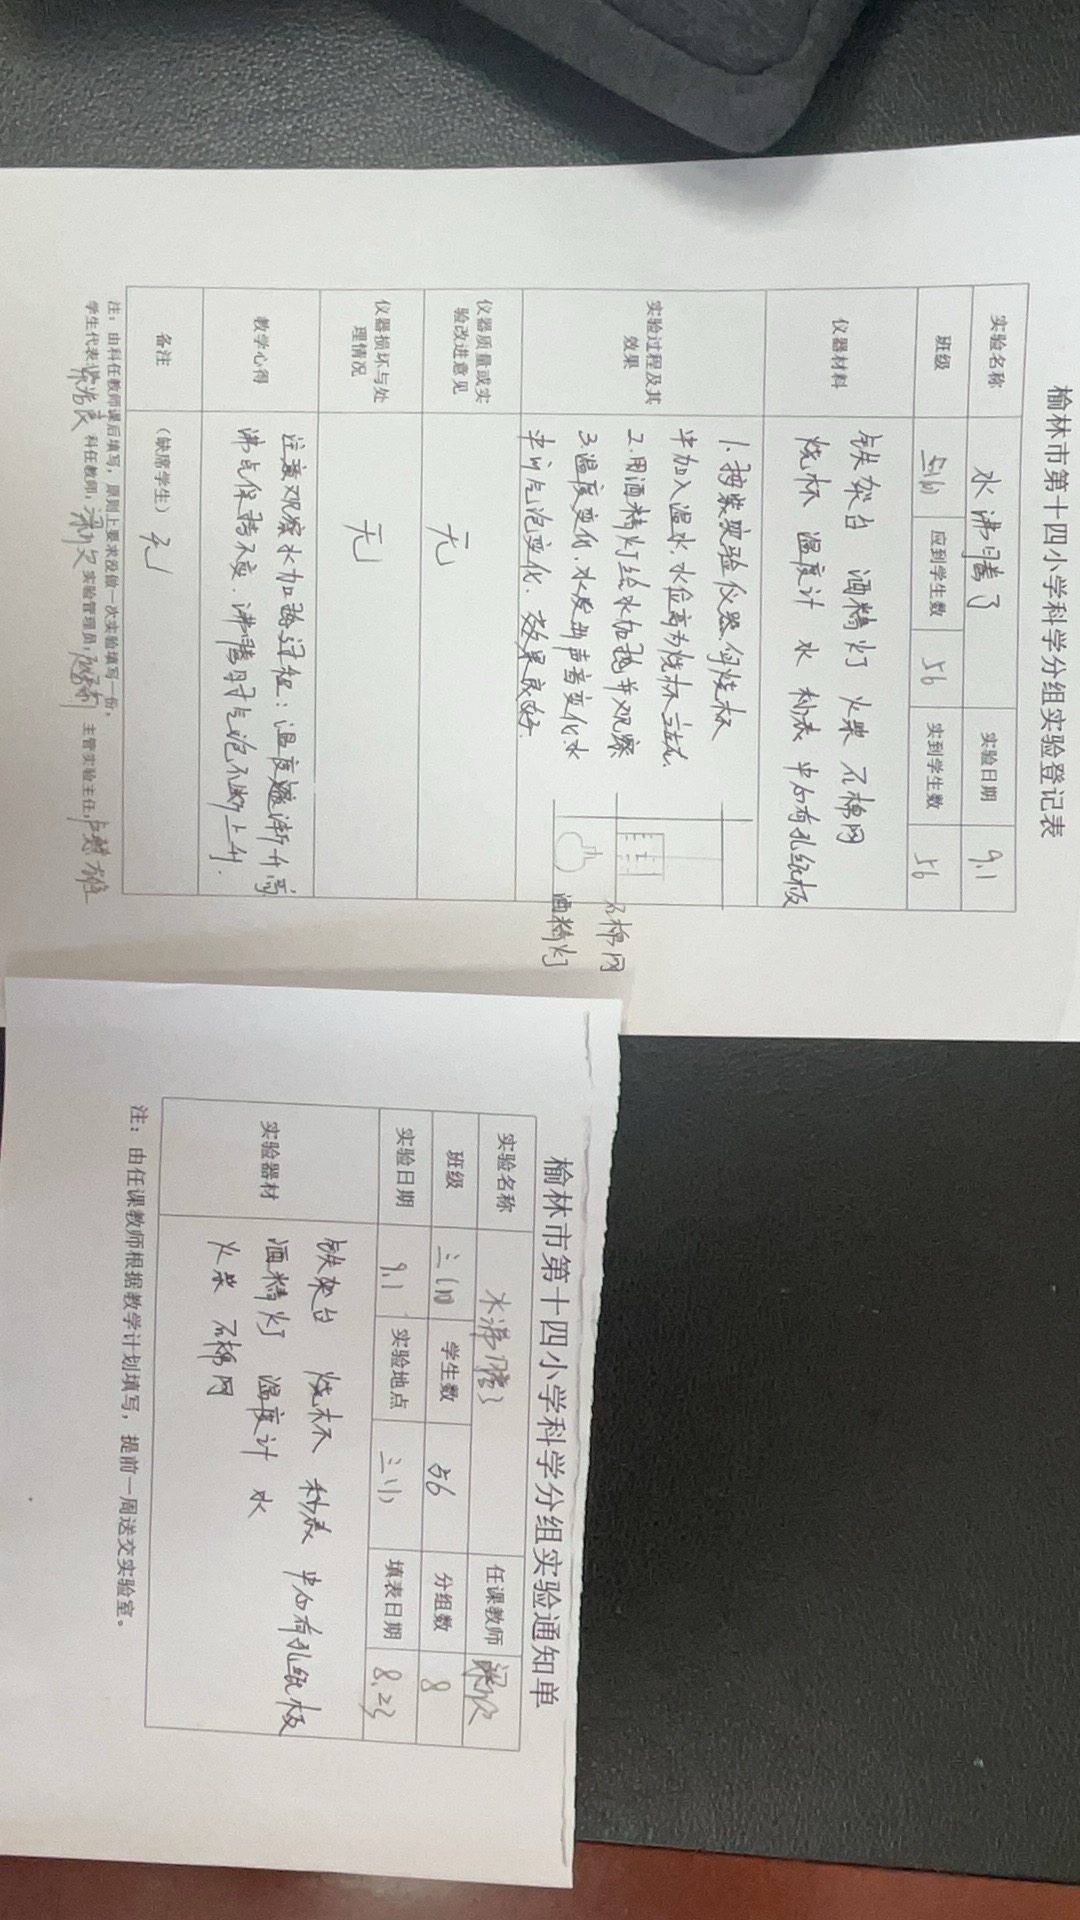 榆林市第十四小学科学分组实验登记表
实验名称 水沸腾了 实验日期 9.1
班级 应到学生数 56 实到学生数 56
仪器材料 铁架台 酒精灯 火柴 石棉网
烧杯 温度计 水 秒表 中心有孔纸板
实验过程及其效果
1.搭装实验仪器.向烧杯
中加入温水,水位高为烧杯左右.
2.用酒精灯给水加热并观察
3.温度变化.水发出声音变化.水
中气泡变化. 效果良好.
石棉网
酒精灯
仪器质量或实验改进意见 无
仪器损坏与处理情况 无
教学心得 注意观察水加热过程:温度逐渐升高
沸点保持不变.沸腾时气泡不断上升.
备注 (缺席学生) 无
注:由科任教师课后填写,原则上要求没做一次实验填写一份,
学生代表: 科任教师: 实验管理员: 主管实验主任:
榆林市第十四小学科学分组实验通知单
实验名称 水沸腾了 任课教师
班级 学生数 56 分组数 8
实验日期 9.1 实验地点 填表日期
实验器材 铁架台 烧杯 秒表 中心有孔纸板
酒精灯 温度计 水
火柴 石棉网
注:由任课教师根据教学计划填写,提前一周送交实验室。